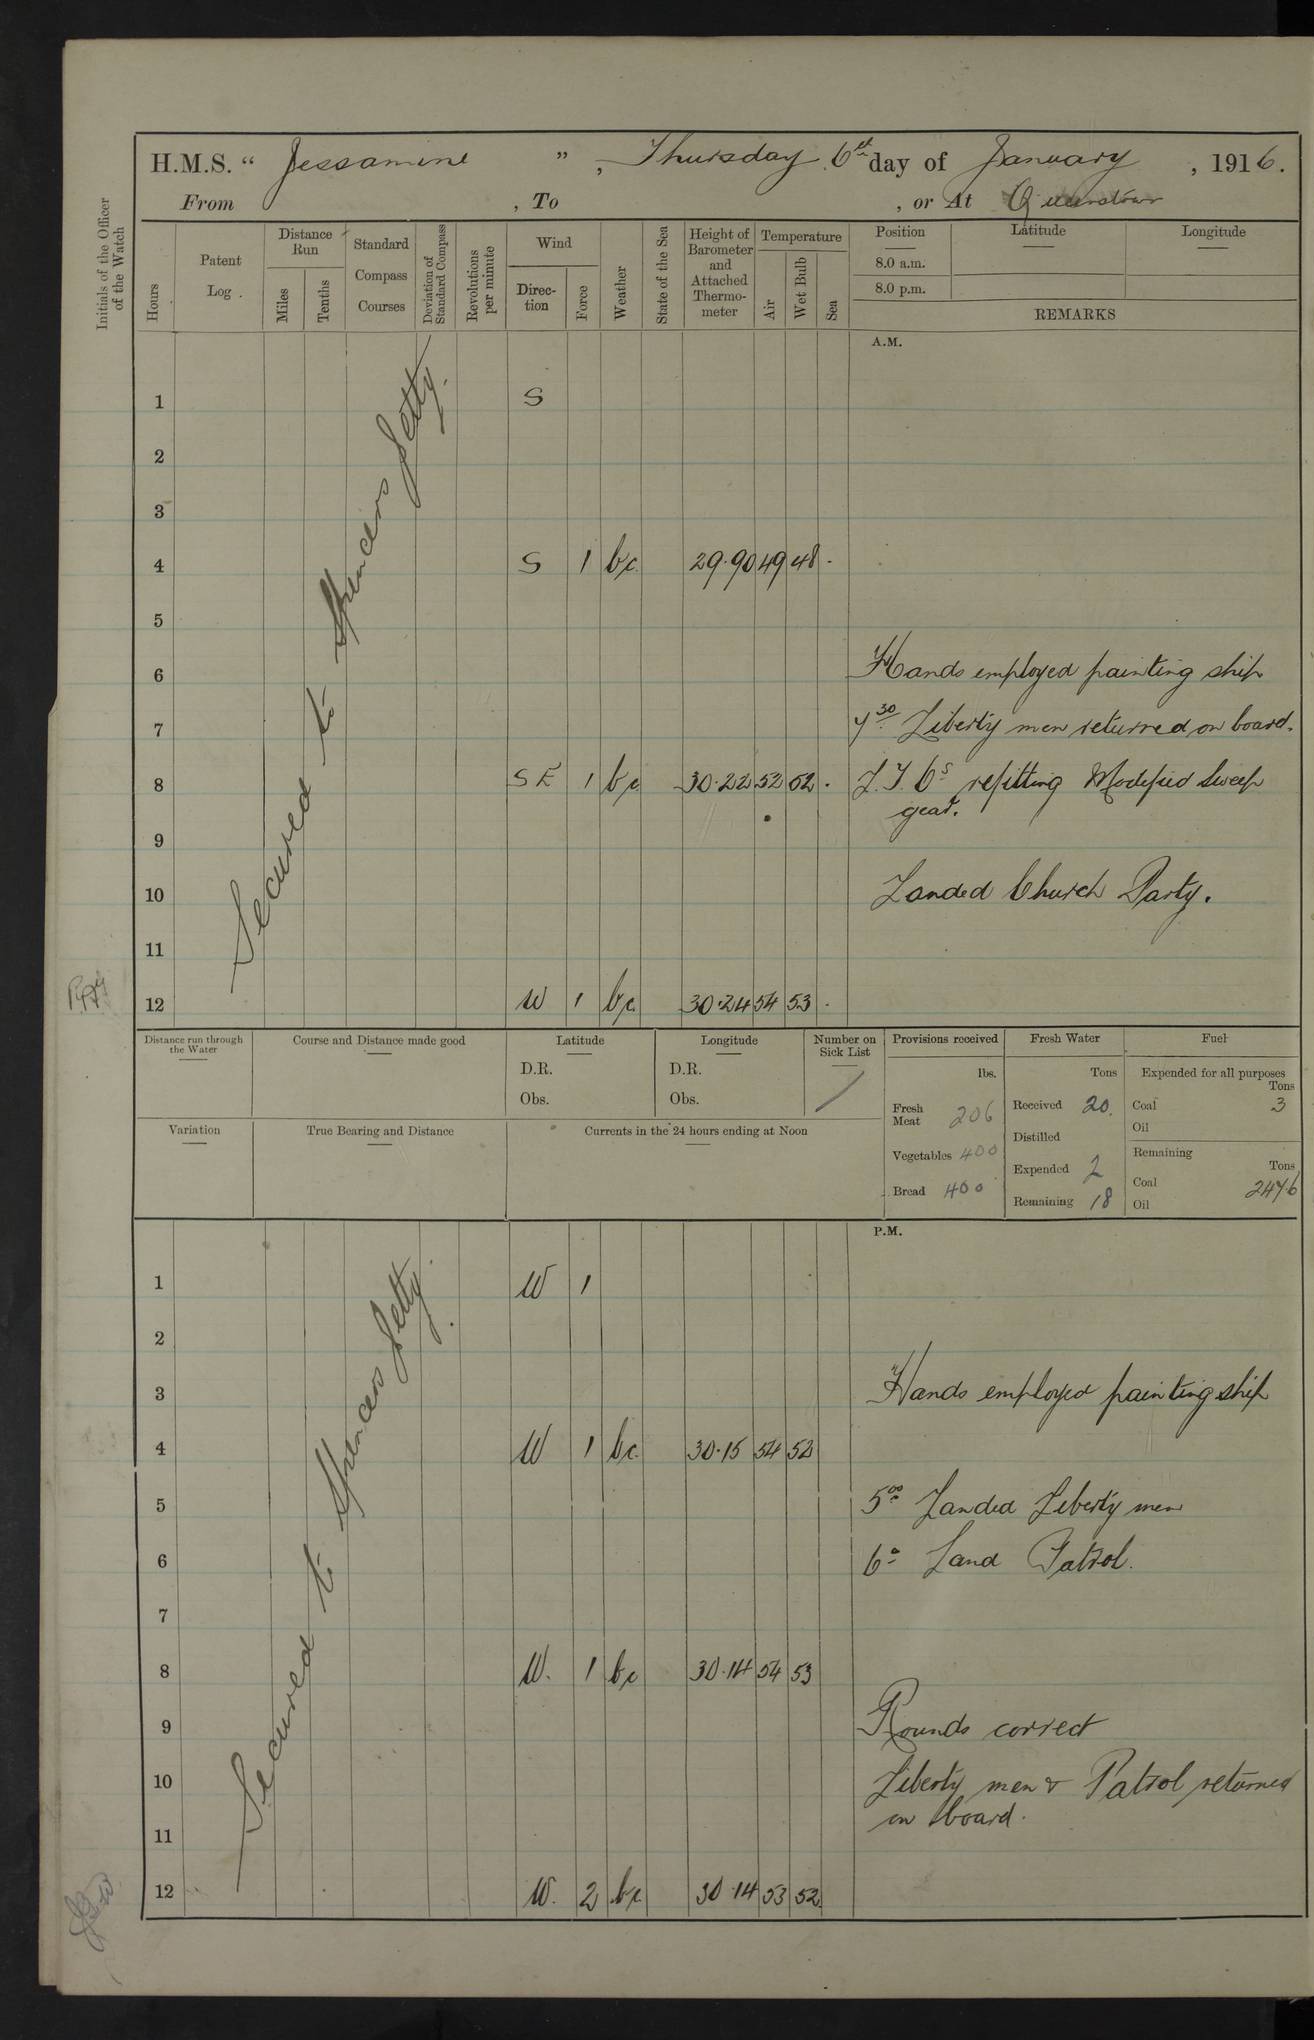 H.M.S. " Jessamine ", Thursday 6th day of January, 1916.
From , To , or At Queenstown
Initials of the Officer of the Watch
Hours
Patent Log.
Distance Run
Miles
Tenths
Standard Compass Courses
Deviation of Standard Compass
Revolutions per minute
Wind
Direction
Force
Weather
State of the Sea
Height of Barometer and Attached Thermometer
Temperature
Air
Wet Bulb
Sea
Position
Latitude
Longitude
8.0 a.m.
8.0 p.m.
REMARKS
A.M.
Secured to Spencers Jetty.
1 S
2
3
4 S 1 bc 29.90 49 48
5
6 Hands employed painting ship
7 7 30 Liberty men returned on board.
8 SE 1 bc 30.22 52 52 L.T.Os refitting Modified Sweep
gear.
9
10 Landed Church Party.
11
12 W 1 bc 30.24 54 53
Distance run through the Water
Course and Distance made good
Latitude
D.R.
Obs.
Longitude
D.R.
Obs.
Number on Sick List
Provisions received
lbs.
Fresh Meat 206
Vegetables 400
Bread 400
Fresh Water
Tons
Received 20
Distilled
Expended 2
Remaining 18
Fuel
Expended for all purposes
Tons
Coal 3
Oil
Remaining
Tons
Coal 247.6
Oil
Variation
True Bearing and Distance
Currents in the 24 hours ending at Noon
P.M.
Secured to Spencers Jetty.
1 W 1
2
3 Hands employed painting ship
4 W 1 bc 30.15 54 52
5 5 00 Landed Liberty men
6 6 0 Land Patrol.
7
8 W. 1 bc 30.14 54 53
9 Rounds correct
10 Liberty men & Patrol returned
on board.
11
12 W. 2 bc 30.14 53 52